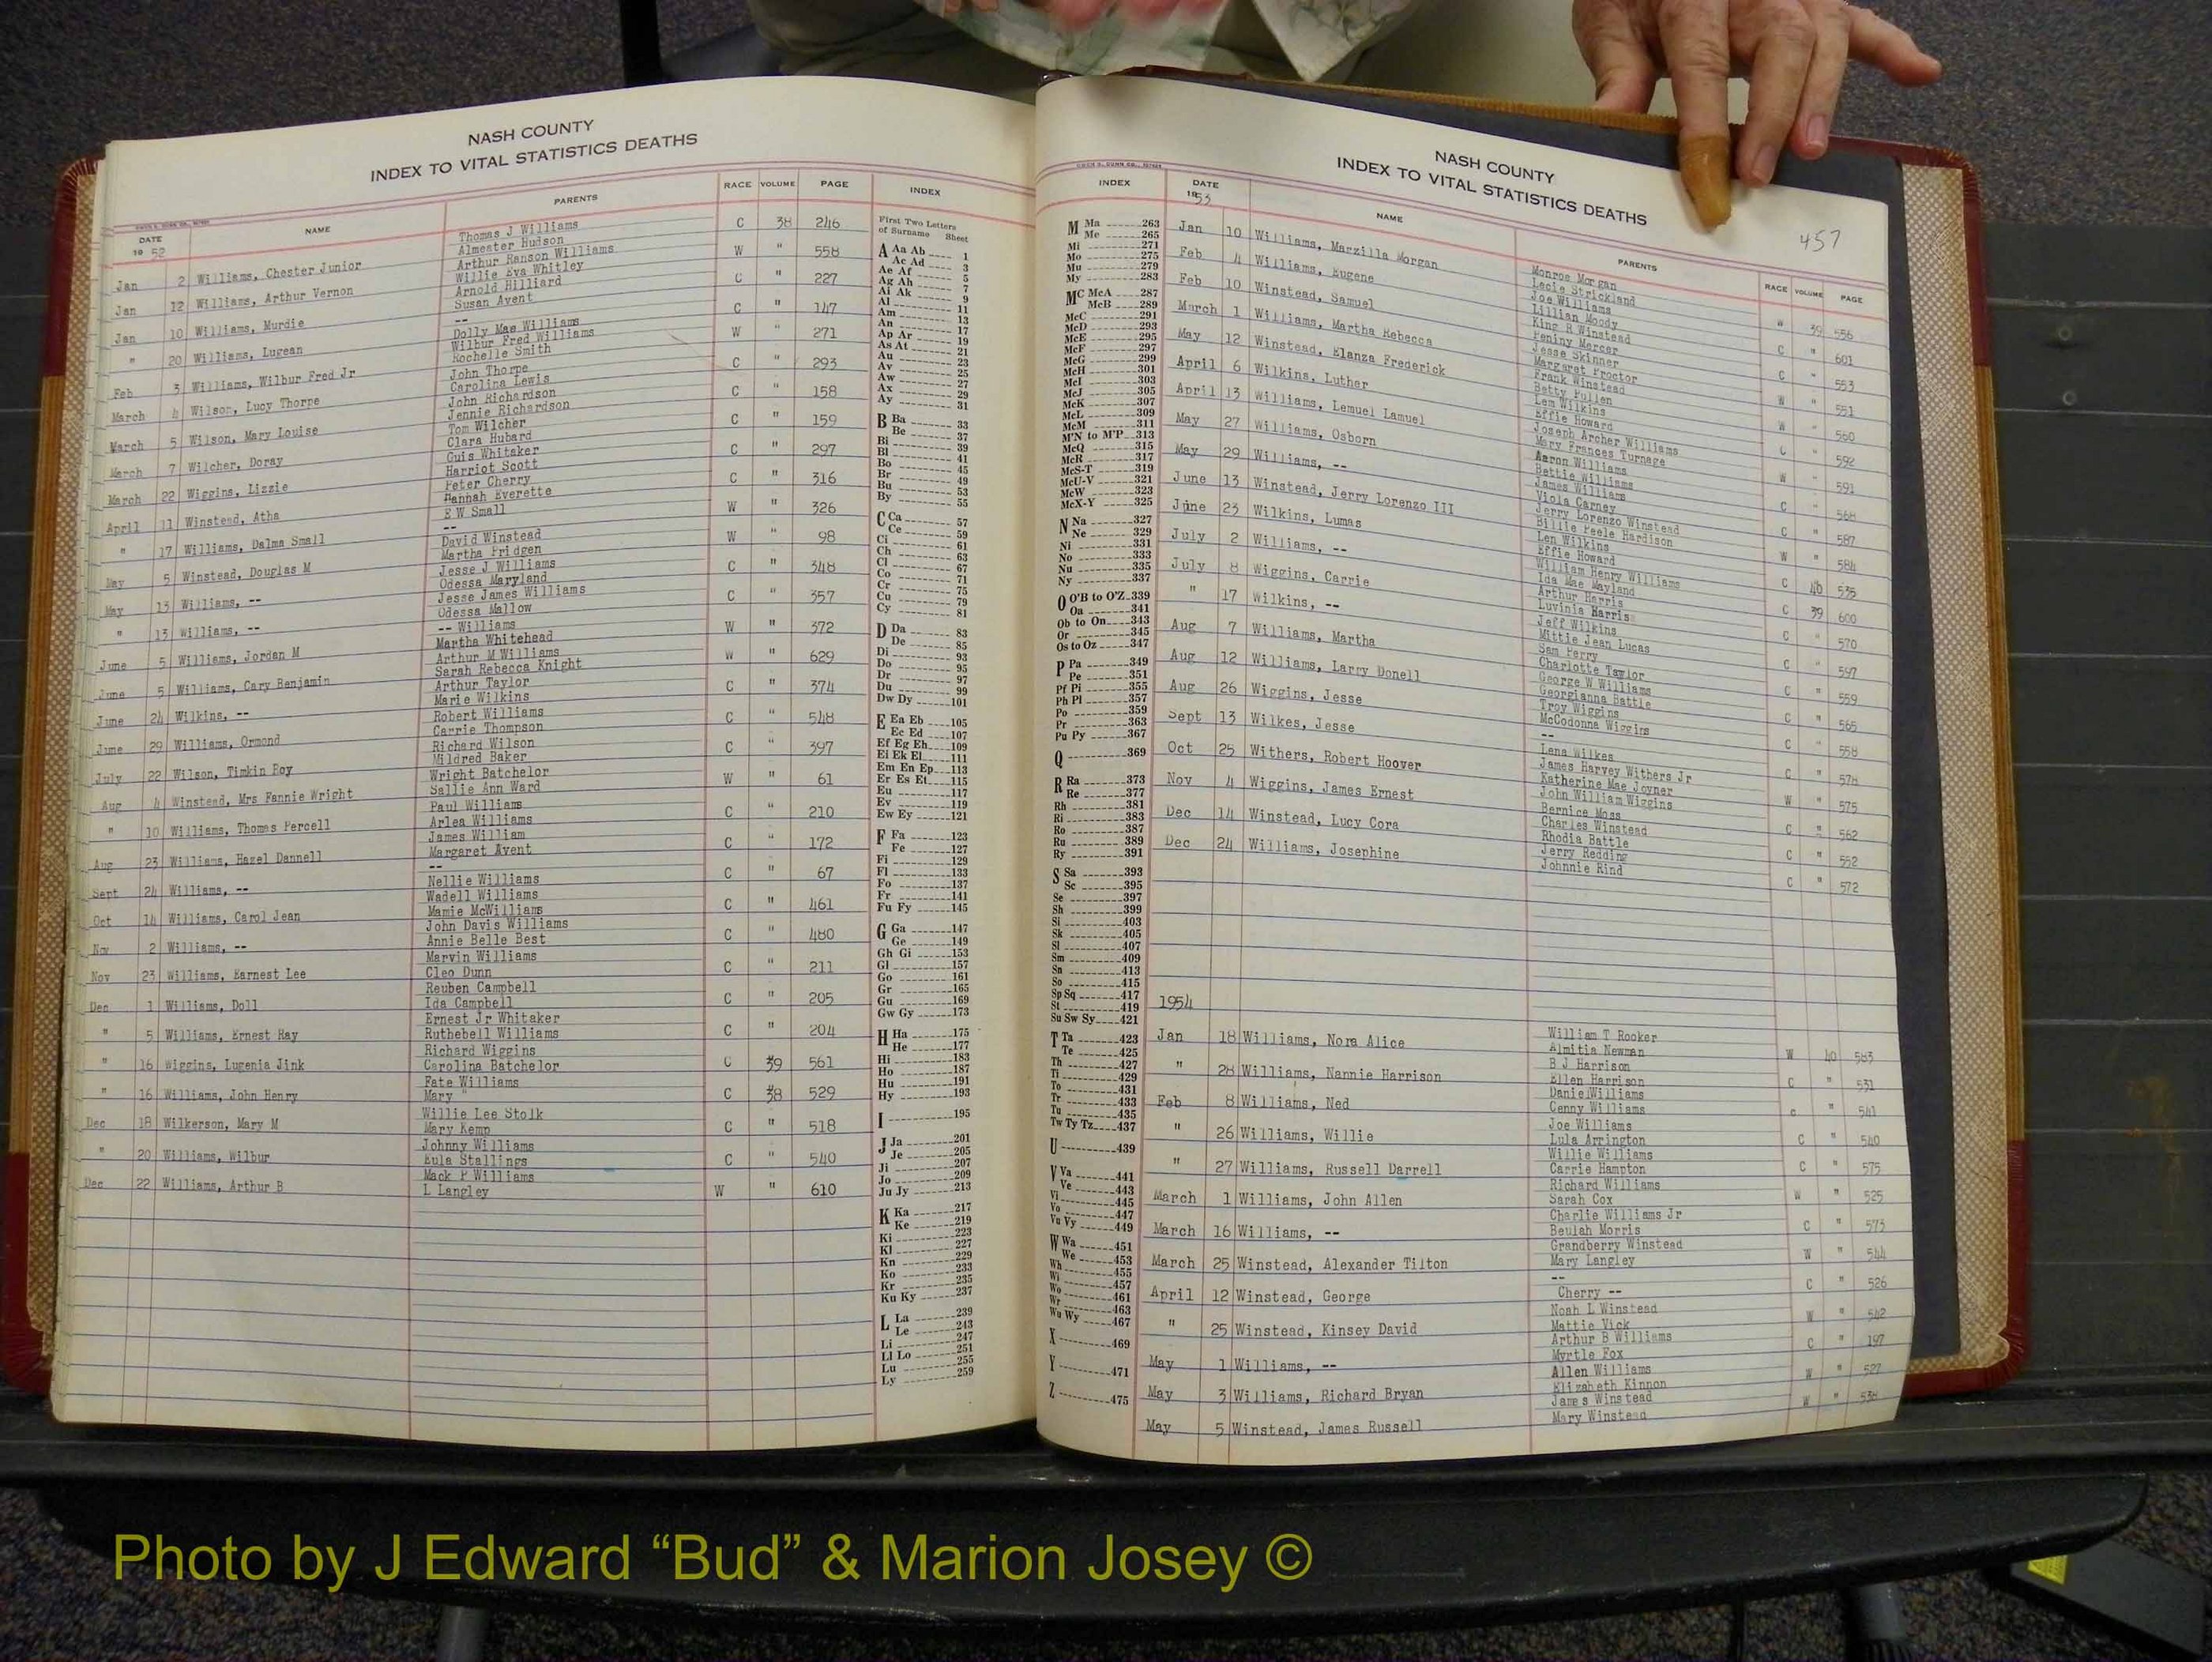 NASH COUNTY
INDEX TO VITAL STATISTICS DEATHS
DATE NAME PARENTS RACE VOLUME PAGE INDEX
19 52
Thomas J Williams C 38 246
Jan 2 Williams, Chester Junior Almester Hudson
Arthur Ranson Williams W " 558
Jan 12 Williams, Arthur Vernon Willie Eva Whitley
Arnold Hilliard C " 227
Jan 10 Williams, Murdie Susan Avent
-- C " 147
" 20 Williams, Lugean Dolly Mae Williams
Wilbur Fred Williams W " 271
Feb 3 Williams, Wilbur Fred Jr Rochelle Smith
John Thorpe C " 293
March 4 Wilson, Lucy Thorpe Carolina Lewis
John Richardson C " 158
March 5 Wilson, Mary Louise Jennie Richardson
Tom Wilcher C " 159
March 7 Wilcher, Doray Clara Hubard
Guis Whitaker C " 297
March 22 Wiggins, Lizzie Harriot Scott
Peter Cherry C " 316
April 11 Winstead, Atha Hannah Everette
E W Small W " 326
" 17 Williams, Dalma Small --
David Winstead W " 98
May 5 Winstead, Douglas M Martha Fridgen
Jesse J Williams C " 348
May 13 Williams, -- Odessa Maryland
Jesse James Williams C " 357
" 13 Williams, -- Odessa Mallow
-- Williams W " 372
June 5 Williams, Jordan M Martha Whitehead
Arthur M Williams W " 629
June 5 Williams, Cary Benjamin Sarah Rebecca Knight
Arthur Taylor C " 374
June 24 Wilkins, -- Marie Wilkins
Robert Williams C " 548
June 29 Williams, Ormond Carrie Thompson
Richard Wilson C " 397
July 22 Wilson, Timkin Roy Mildred Baker
Wright Batchelor W " 61
Aug 4 Winstead, Mrs Fannie Wright Sallie Ann Ward
Paul Williams C " 210
" 10 Williams, Thomas Percell Arlea Williams
James William C " 172
Aug 23 Williams, Hazel Dannell Margaret Avent
-- C " 67
Sept 24 Williams, -- Nellie Williams
Wadell Williams C " 461
Oct 14 Williams, Carol Jean Mamie McWilliams
John Davis Williams C " 480
Nov 2 Williams, -- Annie Belle Best
Marvin Williams C " 211
Nov 23 Williams, Earnest Lee Cleo Dunn
Reuben Campbell C " 205
Dec 1 Williams, Doll Ida Campbell
Ernest Jr Whitaker C " 204
" 5 Williams, Ernest Ray Ruthebell Williams
Richard Wiggins C 39 561
" 16 Wiggins, Lugenia Jink Carolina Batchelor
Fate Williams C 38 529
" 16 Williams, John Henry Mary "
Willie Lee Stolk C " 518
Dec 18 Wilkerson, Mary M Mary Kemp
Johnny Williams C " 540
" 20 Williams, Wilbur Eula Stallings
Mack P Williams W " 610
Dec 22 Williams, Arthur B L Langley
First Two Letters
of Surname Sheet
A Aa Ab 1
Ac Ad 3
Ae Af 5
Ag Ah 7
Ai Ak 9
Al 11
Am 13
An 17
Ap Ar 19
As At 21
Au 23
Av 25
Aw 27
Ax 29
Ay 31
B Ba 33
Be 37
Bi 39
Bl 41
Bo 45
Br 49
Bu 53
By 55
C Ca 57
Ce 59
Ci 61
Ch 63
Cl 67
Co 71
Cr 75
Cu 79
Cy 81
D Da 83
De 85
Di 93
Do 95
Dr 97
Du 99
Dw Dy 101
E Ea Eb 105
Ec Ed 107
Ef Eg Eh 109
Ei Ek El 111
Em En Ep 113
Er Es Et 115
Eu 117
Ev 119
Ew Ey 121
F Fa 123
Fe 127
Fi 129
Fl 133
Fo 137
Fr 141
Fu Fy 145
G Ga 147
Ge 149
Gh Gi 153
Gl 157
Go 161
Gr 165
Gu 169
Gw Gy 173
H Ha 175
He 177
Hi 183
Ho 187
Hu 191
Hy 193
I 195
J Ja 201
Je 205
Ji 207
Jo 209
Ju Jy 213
K Ka 217
Ke 219
Ki 223
Kl 227
Kn 229
Ko 233
Kr 235
Ku Ky 237
L La 239
Le 243
Li 247
Ll Lo 251
Lu 255
Ly 259
NASH COUNTY
INDEX TO VITAL STATISTICS DEATHS
457
INDEX DATE NAME PARENTS RACE VOLUME PAGE
M Ma 263
Me 265
Mi 271
Mo 275
Mu 279
My 283
MC McA 287
McB 289
McC 291
McD 293
McE 295
McF 297
McG 299
McH 301
McI 303
McJ 305
McK 307
McL 309
McM 311
M'N to M'P 313
McQ 315
McR 317
McS-T 319
McU-V 321
McW 323
McX-Y 325
N Na 327
Ne 329
Ni 331
No 333
Nu 335
Ny 337
O O'B to O'Z 339
Oa 341
Ob to On 343
Or 345
Os to Oz 347
P Pa 349
Pe 351
Pf Pi 355
Ph Pl 357
Po 359
Pr 363
Pu Py 367
Q 369
R Ra 373
Re 377
Rh 381
Ri 383
Ro 387
Ru 389
Ry 391
S Sa 393
Sc 395
Se 397
Sh 399
Si 403
Sk 405
Sl 407
Sm 409
Sn 413
So 415
Sp Sq 417
St 419
Su Sw Sy 421
T Ta 423
Te 425
Th 427
Ti 429
To 431
Tr 433
Tu 435
Tw Ty Tz 437
U 439
V Va 441
Ve 443
Vi 445
Vo 447
Vu Vy 449
W Wa 451
We 453
Wh 455
Wi 457
Wo 461
Wr 463
Wu Wy 467
X 469
Y 471
Z 475
1953
Jan 10 Williams, Marzilla Morgan Monroe Morgan
Lecie Strickland W 39 556
Feb 4 Williams, Eugene Joe Williams
Lillian Moody C " 601
Feb 10 Winstead, Samuel King R Winstead
Peniny Mercer C " 553
March 1 Williams, Martha Rebecca Jesse Skinner
Margaret Proctor W " 551
May 12 Winstead, Elanza Frederick Frank Winstead
Betty Pullen W " 560
April 6 Wilkins, Luther Lem Wilkins
Effie Howard C " 592
April 13 Williams, Lemuel Lamuel Joseph Archer Williams
Mary Frances Turnage W " 591
May 27 Williams, Osborn Aaron Williams
Bettie Williams C " 568
May 29 Williams, -- James Williams
Viola Carney C " 587
June 13 Winstead, Jerry Lorenzo III Jerry Lorenzo Winstead
Billie Peele Hardison W " 584
June 23 Wilkins, Lumas Len Wilkins
Effie Howard C 40 535
July 2 Williams, -- William Henry Williams
Ida Mae Mayland C 39 600
July 8 Wiggins, Carrie Arthur Harris
Luvinia Harris C " 570
" 17 Wilkins, -- Jeff Wilkins
Mittie Jean Lucas C " 597
Aug 7 Williams, Martha Sam Perry
Charlotte Taylor C " 559
Aug 12 Williams, Larry Donell George W Williams
Georgianna Battle C " 565
Aug 26 Wiggins, Jesse Troy Wiggins
McCodonna Wiggins C " 558
Sept 13 Wilkes, Jesse --
Lena Wilkes C " 578
Oct 25 Withers, Robert Hoover James Harvey Withers Jr
Katherine Mae Joyner W " 575
Nov 4 Wiggins, James Ernest John William Wiggins
Bernice Moss C " 562
Dec 14 Winstead, Lucy Cora Charles Winstead
Rhodia Battle C " 552
Dec 24 Williams, Josephine Jerry Redding
Johnnie Rind C " 572
1954
Jan 18 Williams, Nora Alice William T Rooker
Almitia Newman W 40 583
" 28 Williams, Nannie Harrison B J Harrison
Ellen Harrison C " 531
Feb 8 Williams, Ned Daniel Williams
Canny Williams c " 541
" 26 Williams, Willie Joe Williams
Lula Arrington C " 540
" 27 Williams, Russell Darrell Willie Williams
Carrie Hampton C " 575
March 1 Williams, John Allen Richard Williams
Sarah Cox W " 525
March 16 Williams, -- Charlie Williams Jr
Beulah Morris C " 573
March 25 Winstead, Alexander Tilton Grandberry Winstead
Mary Langley W " 544
April 12 Winstead, George --
Cherry -- C " 526
" 25 Winstead, Kinsey David Noah L Winstead
Mattie Vick W " 542
May 1 Williams, -- Arthur B Williams
Myrtle Fox C " 197
May 3 Williams, Richard Bryan Allen Williams
Elizabeth Kinnon W " 527
May 5 Winstead, James Russell James Winstead
Mary Winstead W " 538
Photo by J Edward “Bud” & Marion Josey ©